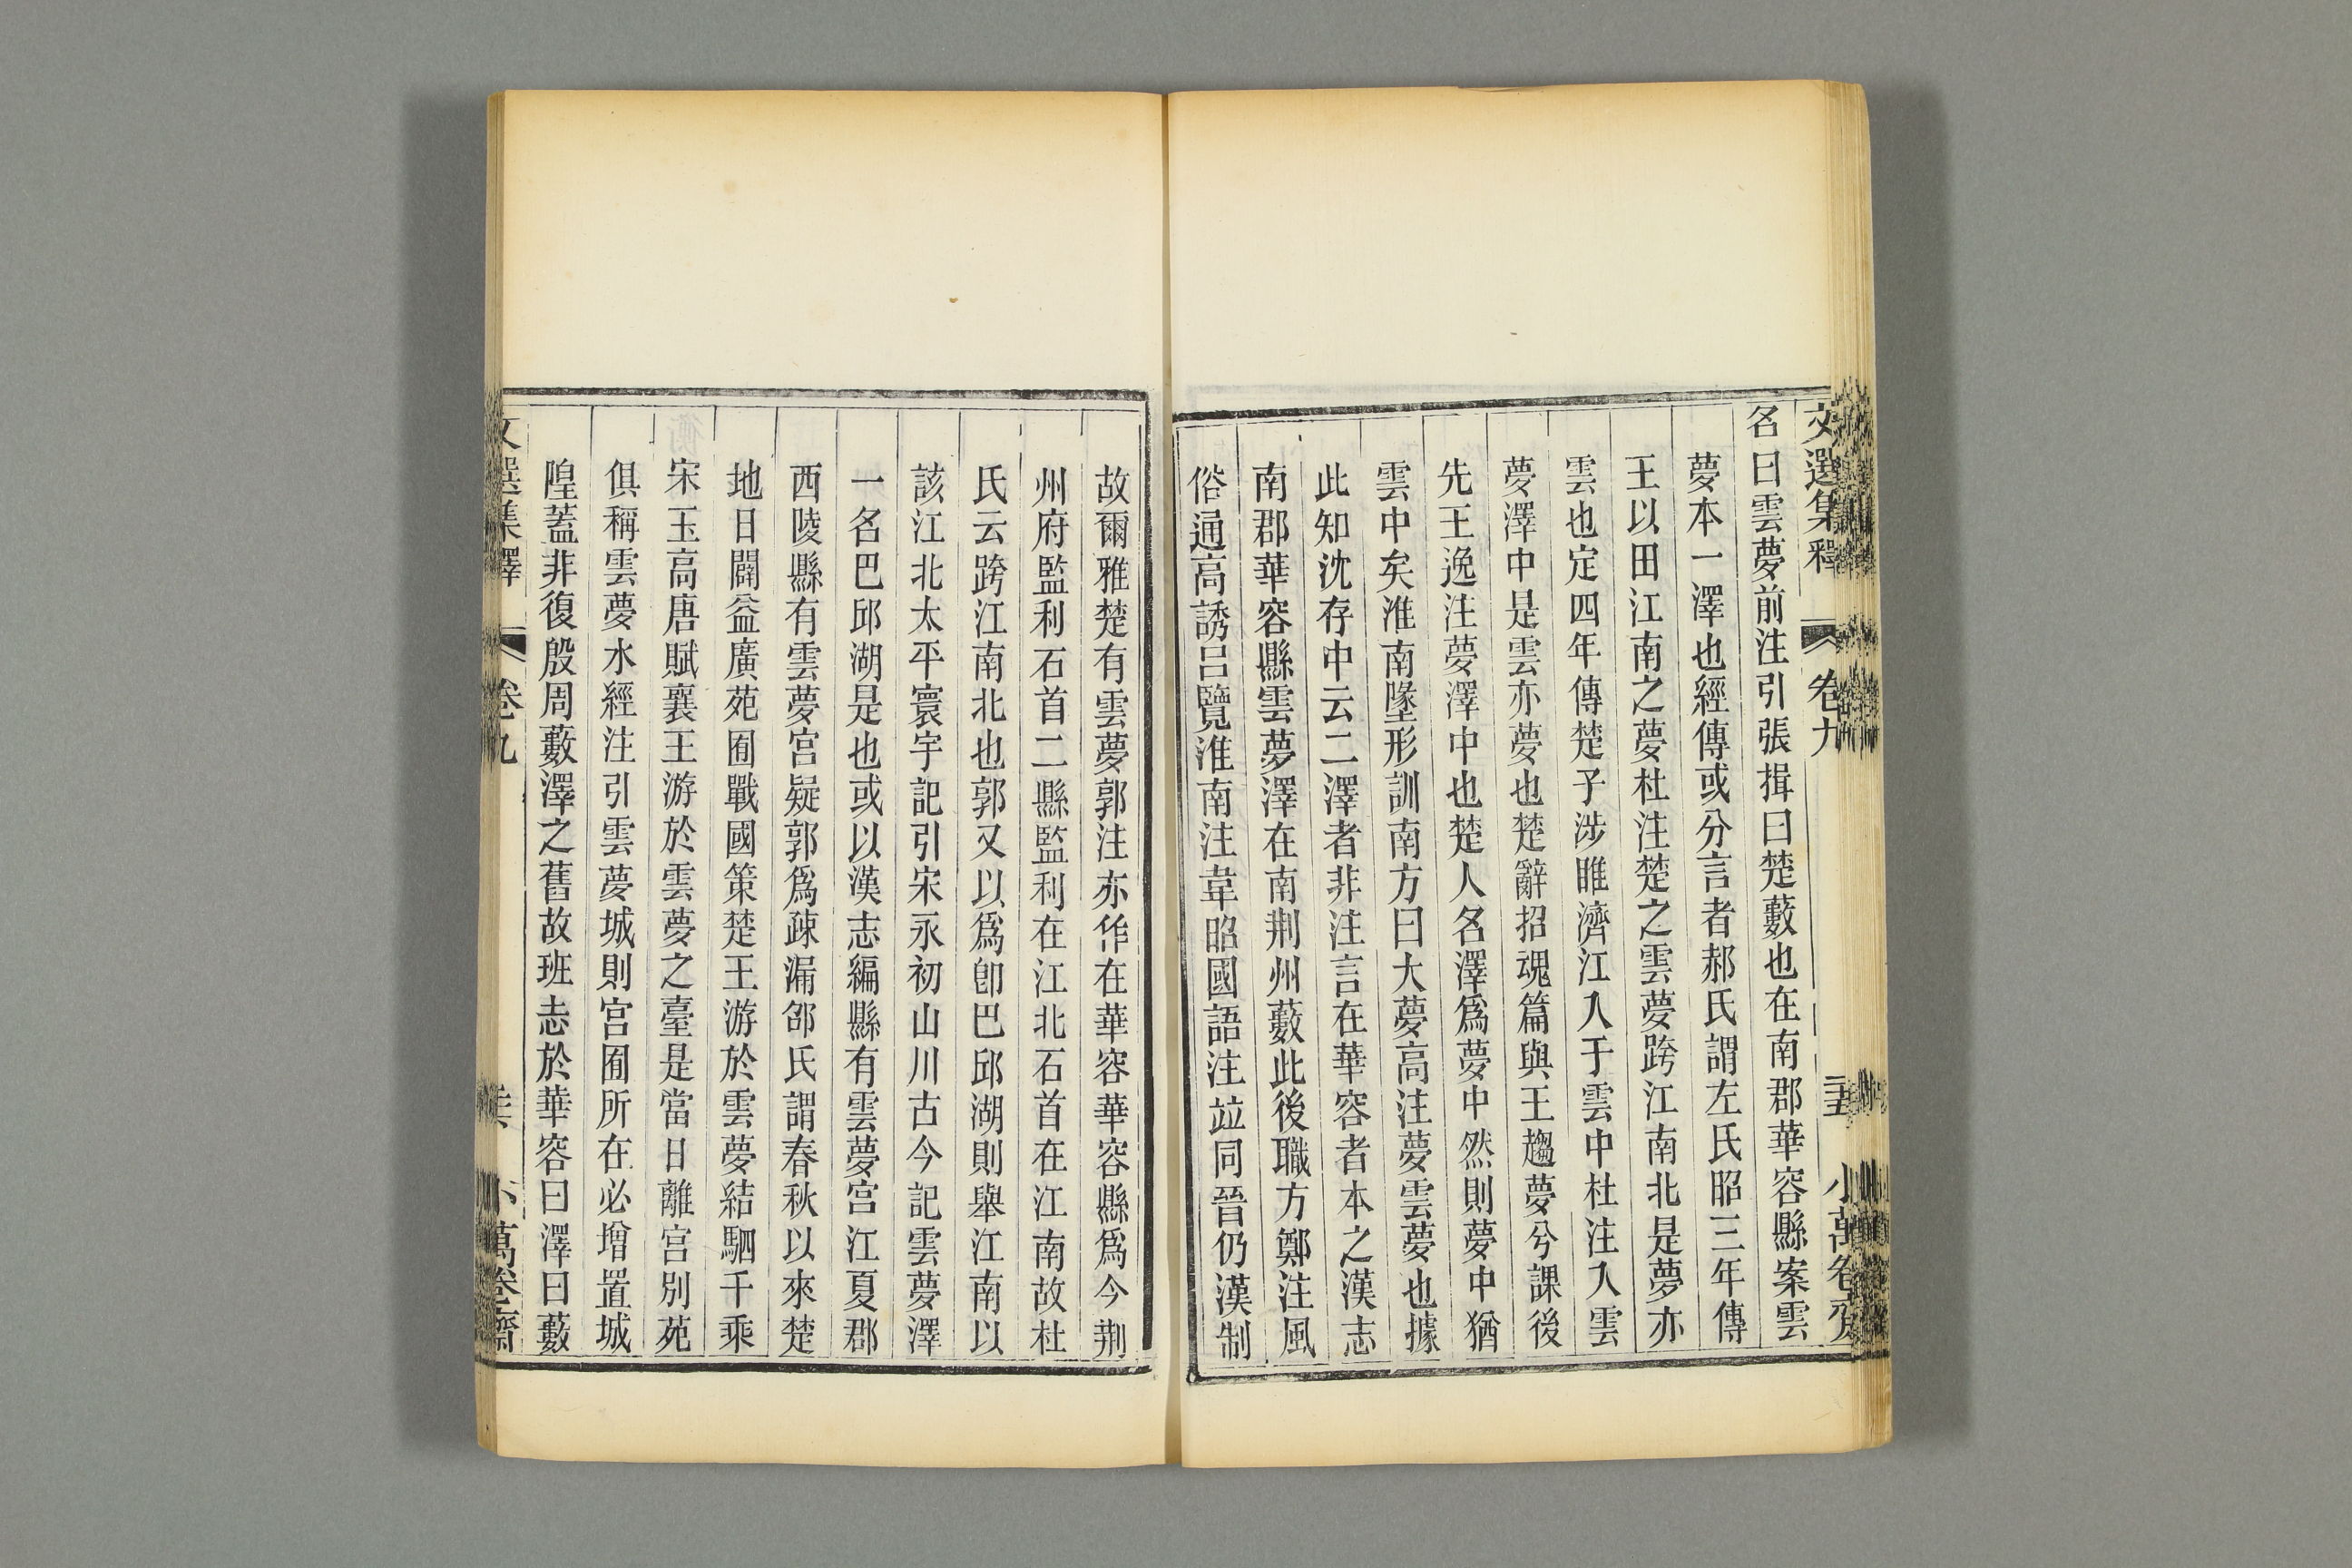 文選集釋 卷九 二十五 小萬卷齋
名曰雲夢前注引張揖曰楚藪也在南郡華容縣案雲
夢本一澤也經傳或分言者郝氏謂左氏昭三年傳
王以田江南之夢杜注楚之雲夢跨江南北是夢亦
雲也定四年傳楚子涉睢濟江入于雲中杜注入雲
夢澤中是雲亦夢也楚辭招魂篇與王趨夢兮課後
先王逸注夢澤中也楚人名澤爲夢中然則夢中猶
雲中矣淮南墬形訓南方曰大夢高注夢雲夢也據
此知沈存中云二澤者非注言在華容者本之漢志
南郡華容縣雲夢澤在南荆州藪此後職方鄭注風
俗通高誘呂覽淮南注韋昭國語注竝同晉仍漢制
故爾雅楚有雲夢郭注亦作在華容華容縣爲今荆
州府監利石首二縣監利在江北石首在江南故杜
氏云跨江南北也郭又以爲卽巴邱湖則舉江南以
該江北太平寰宇記引宋永初山川古今記雲夢澤
一名巴邱湖是也或以漢志編縣有雲夢宮江夏郡
西陵縣有雲夢宮疑郭爲疎漏邵氏謂春秋以來楚
地日闢益廣苑囿戰國策楚王游於雲夢結駟千乘
宋玉高唐賦襄王游於雲夢之臺是當日離宮別苑
俱稱雲夢水經注引雲夢城則宮囿所在必增置城
隍蓋非復殷周藪澤之舊故班志於華容曰澤曰藪
文選集釋 卷九 小萬卷齋